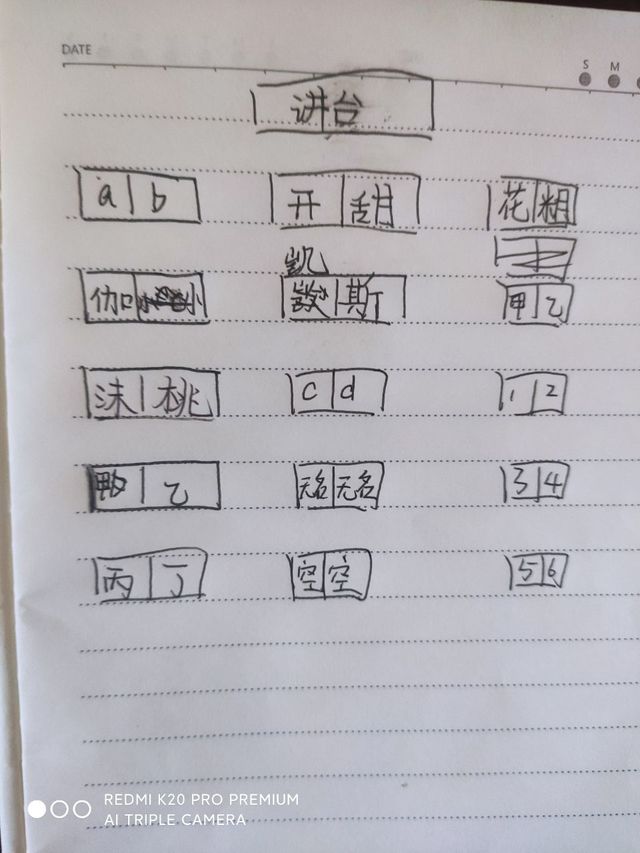 DATE
S M
讲台
a b 开 甜 花 粗
凯
伽 小 斯 甲 乙
沫 桃 c d 1 2
乙 无名 无名 3 4
丙 丁 空 空 5 6
REDMI K20 PRO PREMIUM
AI TRIPLE CAMERA